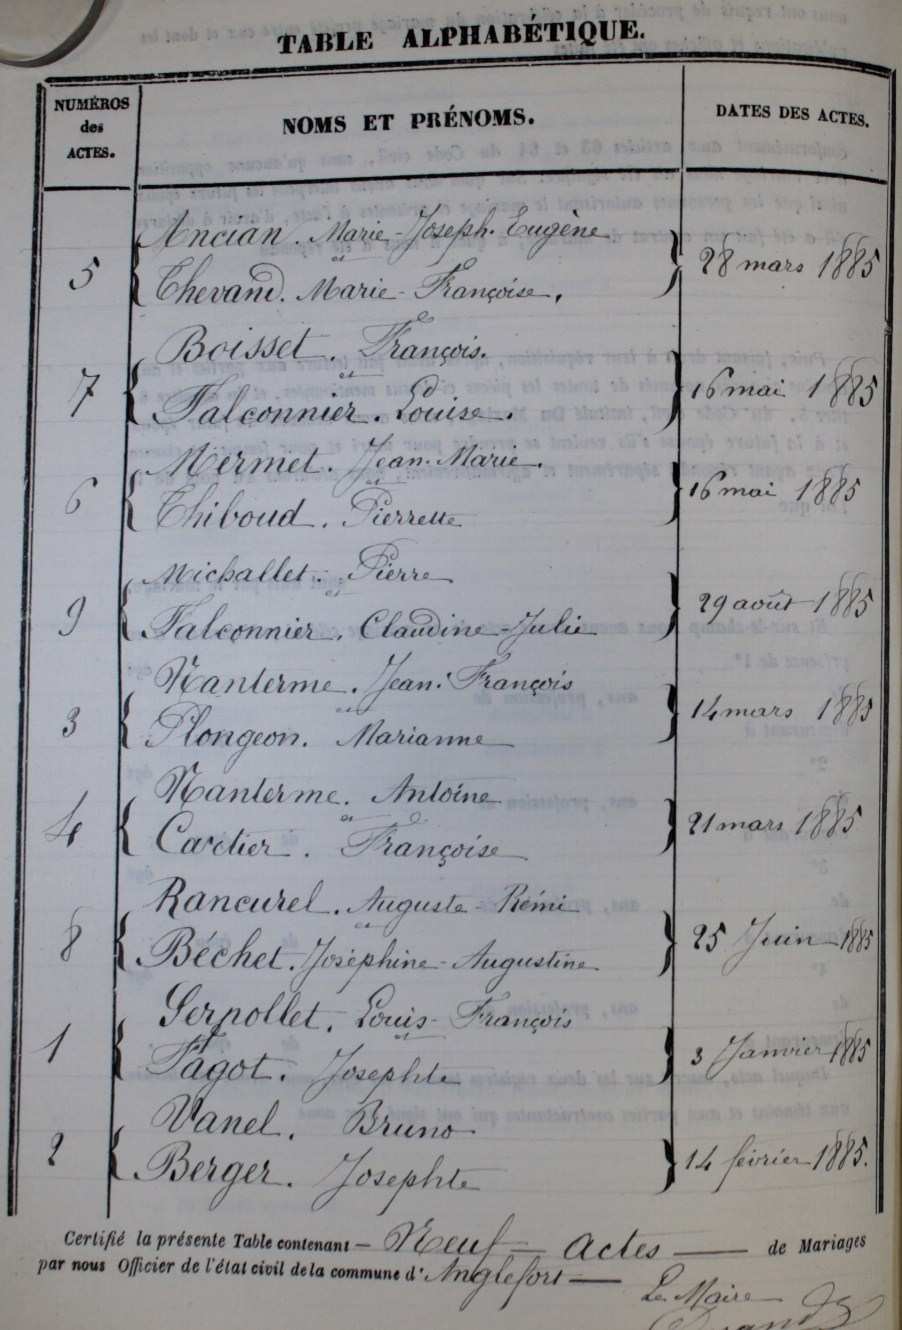 TABLE ALPHABÉTIQUE.
NUMÉROS des ACTES.
NOMS ET PRÉNOMS.
DATES DES ACTES.
Ancian. Marie-Joseph. Eugène
et
5 Thevand. Marie-Françoise. 28 mars 1885
Boisset. François.
et
7 Falconnier. Louise. 16 mai 1885
Mermet. Jean-Marie.
et
6 Thiboud. Pierrette 16 mai 1885
Michallet. Pierre
et
9 Falconnier. Claudine-Julie 29 août 1885
Nanterme. Jean-François
et
3 Plongeon. Marianne 14 mars 1885
Nanterme. Antoine
et
4 Cartier. Françoise 21 mars 1885
Rancurel. Auguste-Rémi
et
8 Béchet. Joséphine-Augustine 25 Juin 1885
Serpollet. Louis-François
et
1 Fagot. Josephte 3 Janvier 1885
Vanel. Bruno
2 Berger. Josephte 14 février 1885.
Certifié la présente Table contenant – Neuf – actes – de Mariages
par nous Officier de l'état civil de la commune d'Anglefort –
Le Maire